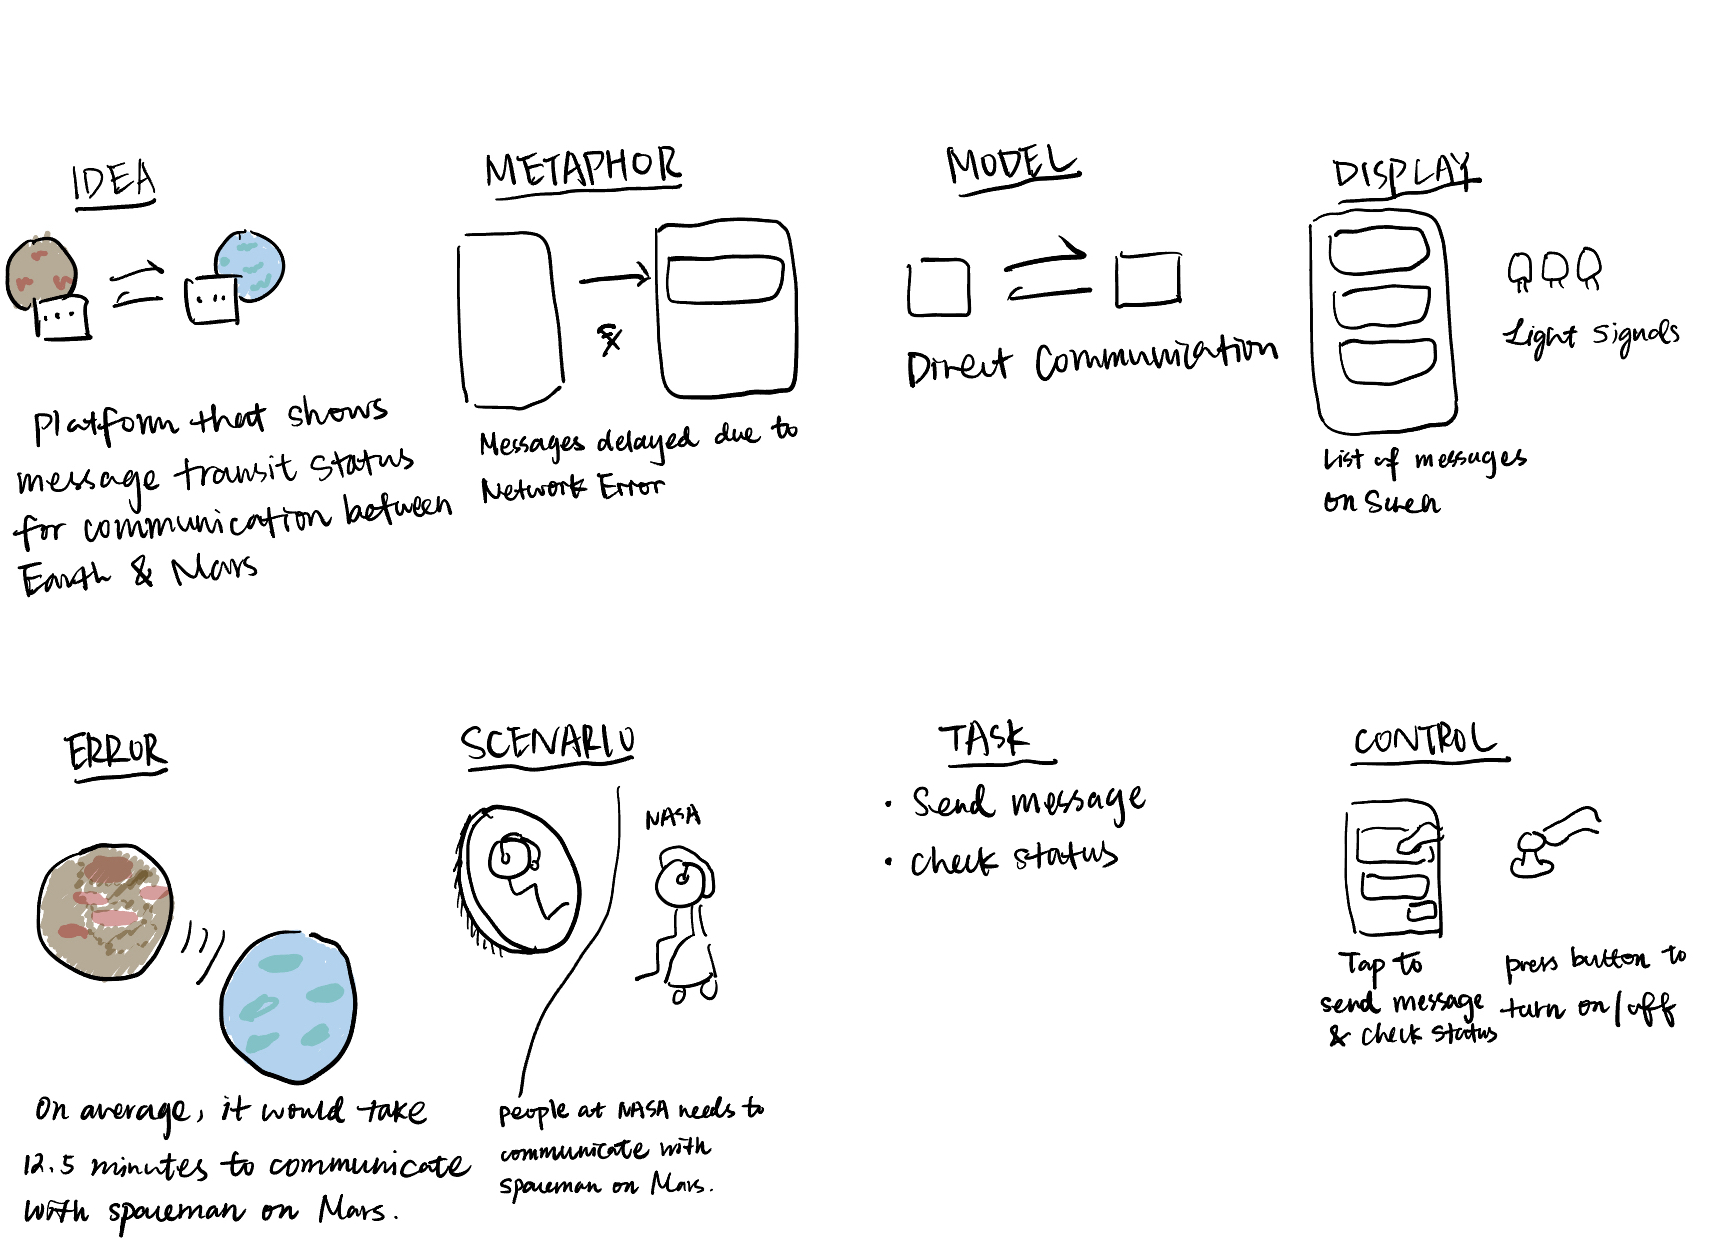 IDEA
Platform that shows
message transit status
for communication between
Earth & Mars
METAPHOR
Messages delayed due to
Network Error
MODEL
Direct Communication
DISPLAY
Light Signals
List of messages
on Screen
ERROR
On average, it would take
12.5 minutes to communicate
with spaceman on Mars.
SCENARIO
NASA
people at NASA needs to
communicate with
spaceman on Mars.
TASK
· Send message
· Check status
CONTROL
Tap to
send message
& check status
press button to
turn on/off